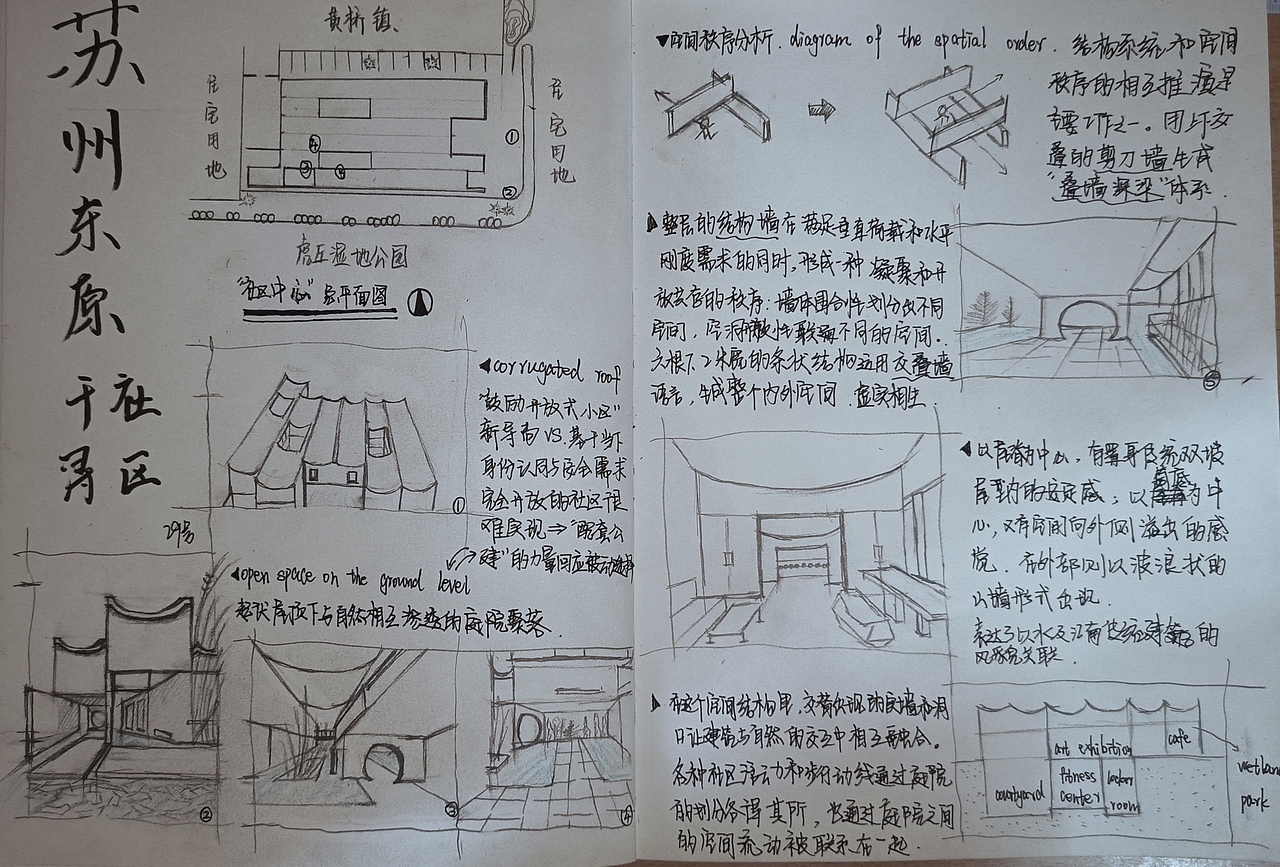 苏州东原
千浔社区
29号
黄桥镇
住宅用地
住宅用地
①
②
③
④
虎丘湿地公园
"社区中心"总平面图
corrugated roof
"鼓励开放式小区"
新导向VS.基于当下
身份认同与安全需求
完全开放的社区很
难实现⇒"配套公
建"的力量回应被动选择
①
open space on the ground level
起伏屋顶下与自然相互渗透的庭院聚落.
②
③
④
空间秩序分析. diagram of the spatial order. 结构系统和空间
秩序的相互推演是
主要工作之一。
叠的剪刀墙生成
"叠墙深梁"体系.
整层的结构墙在满足垂直荷载和水平
刚度需求的同时,形成一种凝聚和开
放共存的秩序:墙体围合性划分出不同
空间,空洞
不同的空间.
六根7.2米宽的条状结构运用交叠墙
语言,生成整个内外空间.虚实相生
⑤
以庭为中心,有着寻传统双坡
屋里的安定感;以
为中
心,又有空间向外侧溢出的感
觉.在外部则以波浪状的
山墙形式出现.
表达了以水及江南传统建筑的
风貌关联.
在这个空间结构里,交替出现的实墙和洞
口让建筑与自然的交互中相互融合。
各种社区活动和步行动线通过庭院
的划分各得其所,也通过庭院之间
的空间流动被联系在一起.
art exhibition
cafe
courtyard
fitness center
locker room
wetland park